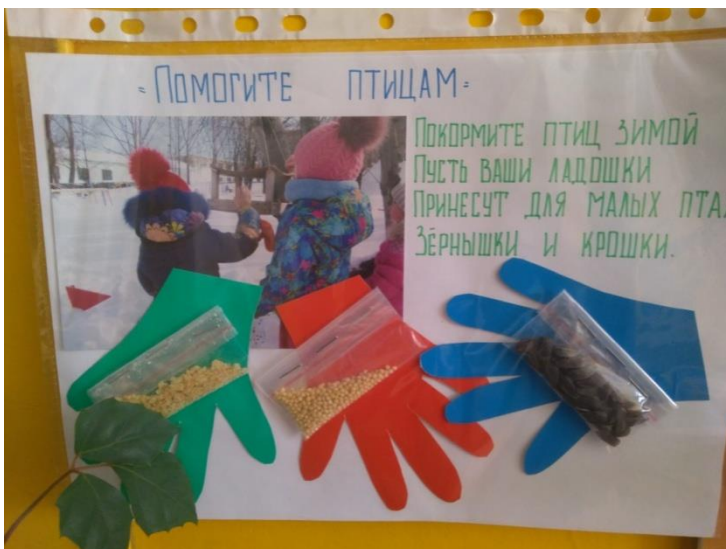 = ПОМОГИТЕ ПТИЦАМ =
ПОКОРМИТЕ ПТИЦ ЗИМОЙ
ПУСТЬ ВАШИ ЛАДОШКИ
ПРИНЕСУТ ДЛЯ МАЛЫХ
ЗЁРНЫШКИ И КРОШКИ.